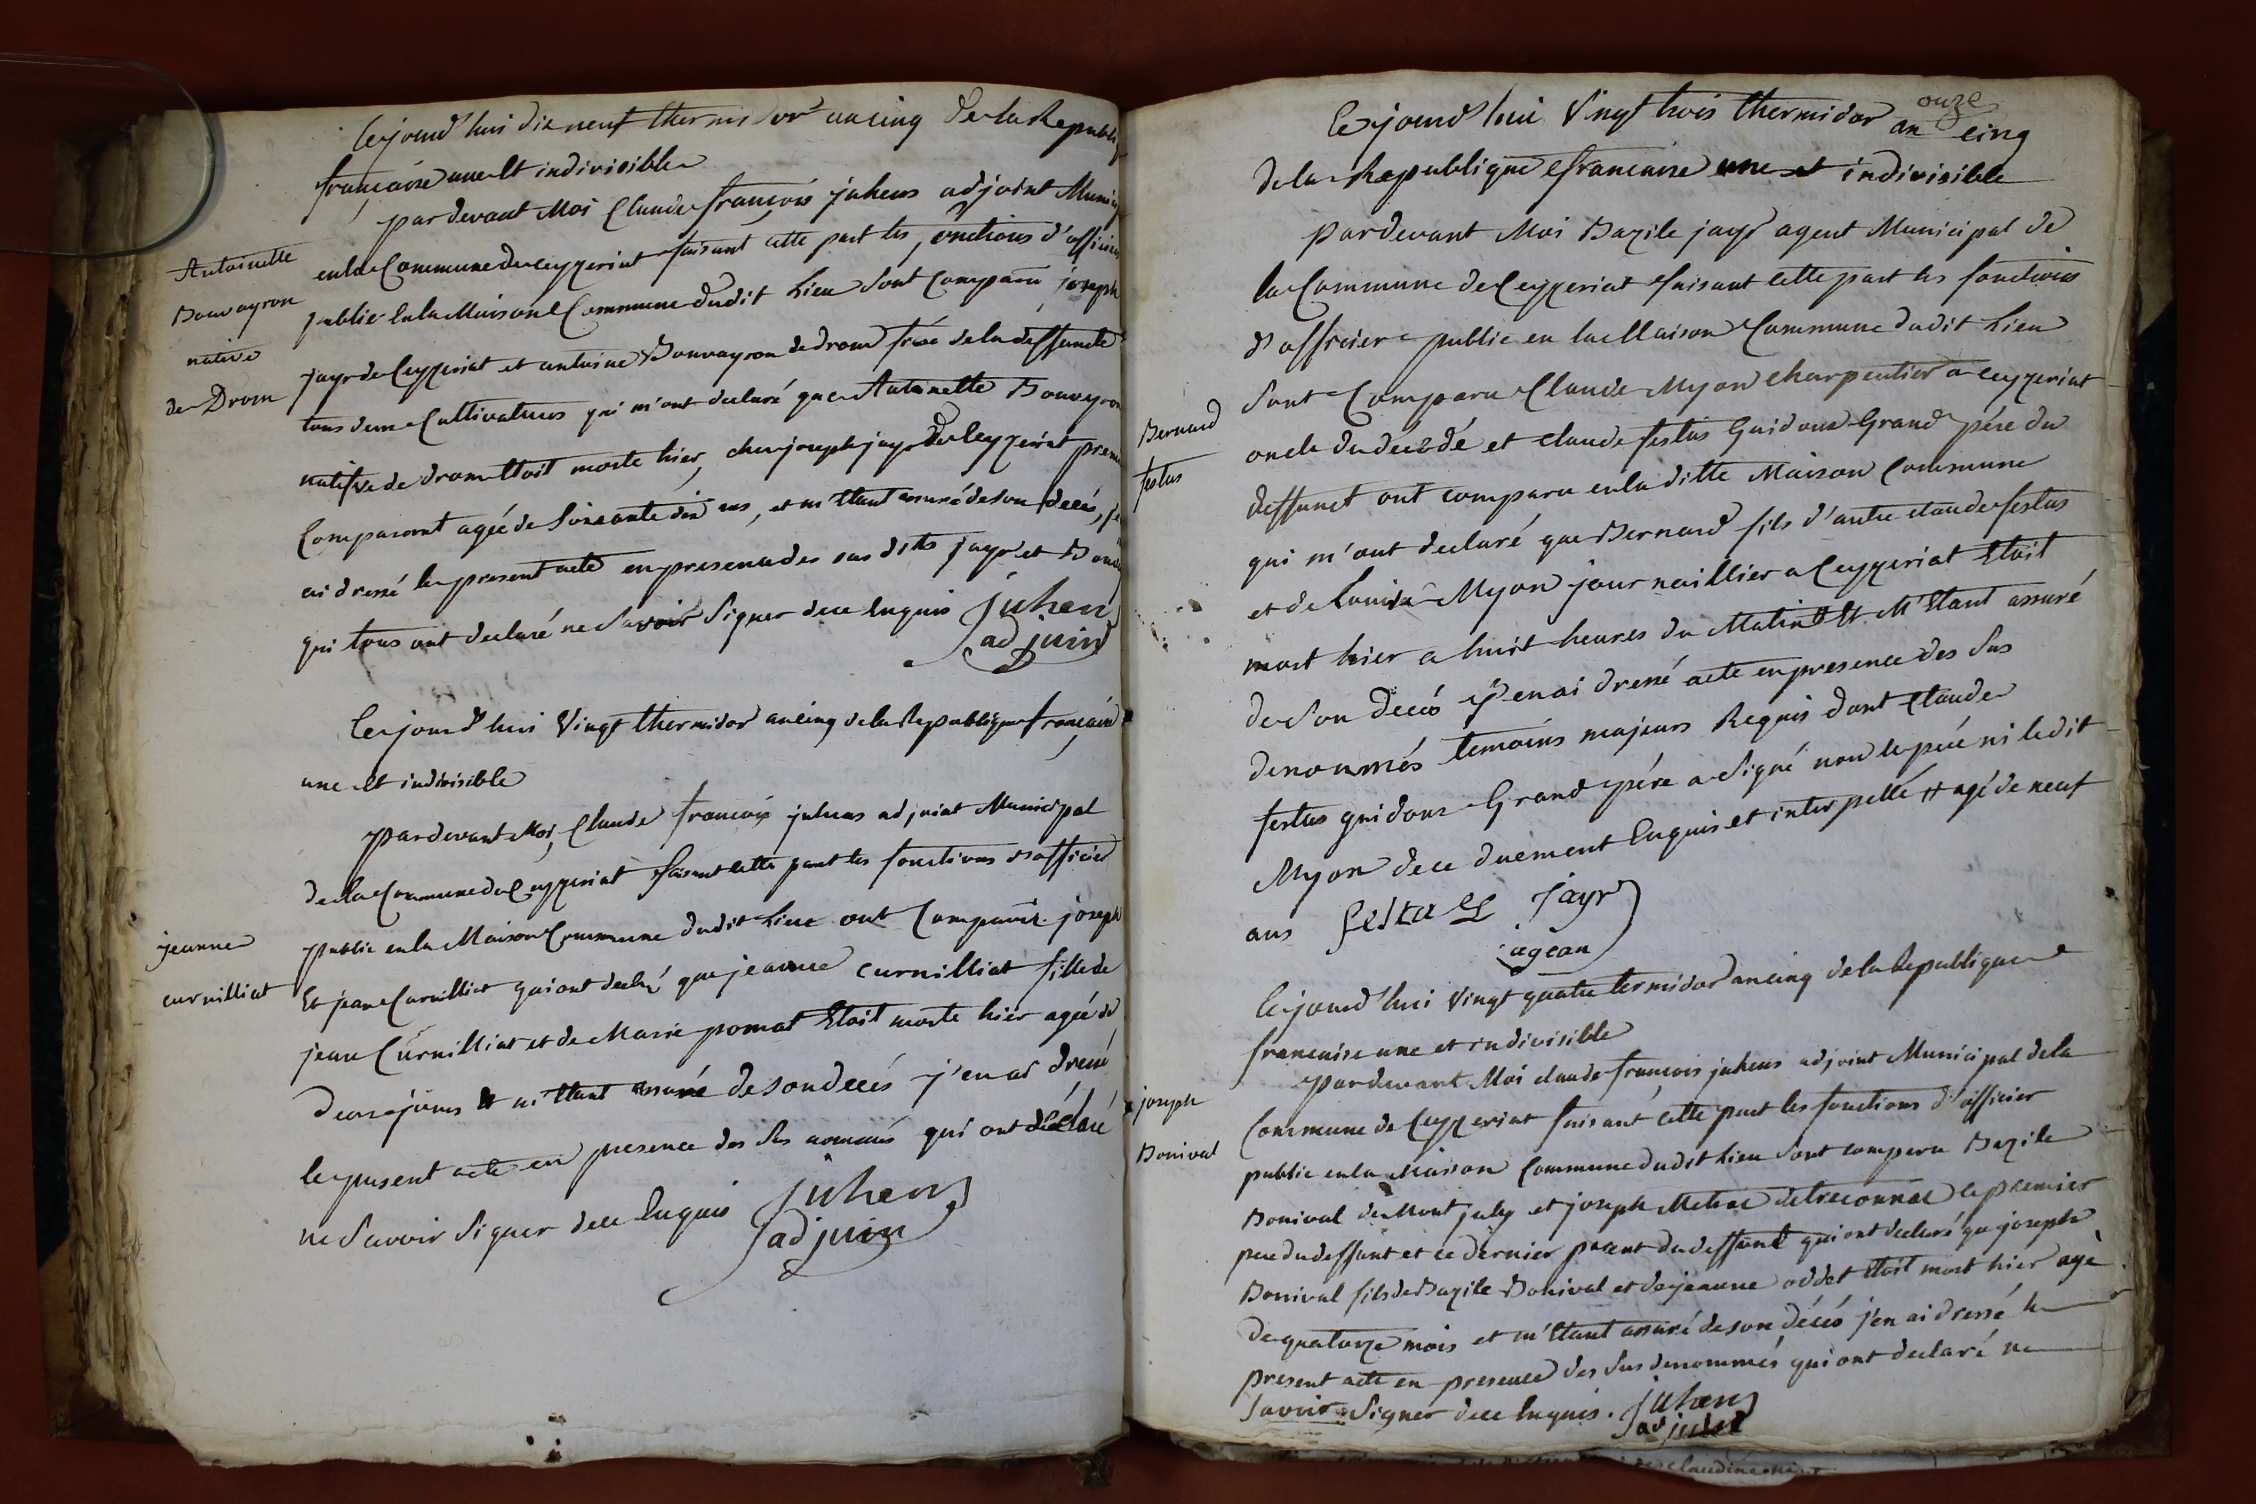 Cejourd'hui dix neuf thermidor an cinq de la Republiq
française une et indivisible
pardevant Moi Claude françois juhens adjoint Munici
en la Commune de Ceyzeriat faisant cette part les fonctions d'officier
public en la Maison Commune dudit Lieu sont comparu joseph
jayr de Ceyzeriat et antoine Bouvayron de drom frère de la deffuncte
tous deux Cultivateurs qui m'ont declaré que Antoinette Bouvayron
natifve de drom etoit morte hier, chez joseph jayr de Ceyzeriat premier
Comparant agée de soixante dix ans, et m'etant assuré de son decès, j'en
ai dressé le present acte en presence des sus dits jayr et Bouva
qui tous ont declaré ne savoir signer de ce enquis juhen
adjuin
Antoinette
Bouvayron
native
de Drom
Cejourd'hui Vingt thermidor an cinq de la Republique française
une et indivisible
pardevant Moi, Claude françois juhens adjoint Municipal
de la Commune de Ceyzeriat faisant cette part les fonctions d'officier
public en la Maison Commune dudit Lieu ont Comparu joseph
Et jean Curnilliat qui ont declré que jeanne Curnilliat fille de
jean Curnilliat et de Marie pomat Etoit morte hier agée de
deux jours et m'etant assuré de son decès j'en ai dressé
le present acte en presence des sus nommés qui ont déclaré
ne savoir signer de ce Enquis juhen
adjuin
jeanne
curnilliat
Cejourd'hui Vingt trois thermidor an onze cinq
de la Republique francaise une et indivisible
Pardevant Moi Bazile jayr agent Municipal de
la Commune de Ceyzeriat faisant cette part les fonctions
d'officier public en la Maison Commune dudit Lieu
sont Comparu Claude Myon charpentier a ceyzeriat
oncle du decedé et claude festus Guidoux Grand père du
deffunct ont comparu en la ditte Maison Commune
qui m'ont declaré que Bernard fils d'autre claude festus
et de Louise Myon journaillier a Ceyzeriat Etoit
mort hier a huit heures du Matin # Et M'Etant assuré
de son Decès j'en ai dressé acte en presence des sus
denommés temoins majeurs Requis dont Claude
festus guidoux Grand père a signé non le père ni ledit
Myon de ce duement Enquis et interpellé # agé de neuf
ans festus jayr
agean
Bernard
festus
Cejourd'hui Vingt quatre termidor an cinq de la Republique
francaise une et indivisible
pardevant Moi claude françois juhens adjoint Municipal de la
Commune de Ceyzeriat faisant cette part les fonctions d'officier
public en la Maison Commune dudit Lieu sont comparu Bazile
Bonival de Mont july et joseph de treconnas le premier
pere du deffunt et ce dernier parent du deffunt qui ont declaré que joseph
Bonival fils de Bazile Bonival et de jeanne oddet Etoit mort hier agé
de quatorze mois et m'Etant assuré de son décès j'en ai dressé le
present acte en presence des sus denommés qui ont declaré ne
savoir signer de ce Enquis. juhen
adjuin
joseph
Bonival